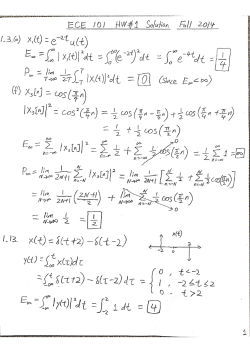 ECE 101 HW#1 Solution Fall 2014
1.3.(a) x₁(t) = e^{-2t} u(t)
E∞ = ∫_{-∞}^{∞} |x₁(t)|² dt = ∫_0^∞ (e^{-2t})² dt = ∫_0^∞ e^{-4t} dt = 1/4
P∞ = lim_{T→∞} 1/2T ∫_{-T}^{T} |x₁(t)|² dt = 0 (since E∞<∞)
(f) x₃[n] = cos(π/4 n)
|x₃[n]|² = cos²(π/4 n) = 1/2 cos(π/4 n - π/4 n) + 1/2 cos(π/4 n + π/4 n)
= 1/2 + 1/2 cos(π/2 n)
E∞ = Σ_{n=-∞}^{∞} |x₃[n]|² = Σ_{n=-∞}^{∞} 1/2 + Σ_{n=-∞}^{∞} 1/2 cos(π/2 n) = 1/2 Σ_{n=-∞}^{∞} 1 = ∞
P∞ = lim_{N→∞} 1/2N+1 Σ_{n=-N}^{N} |x₃[n]|² = lim_{N→∞} 1/2N+1 [Σ_{n=-N}^{N} 1/2 + Σ_{n=-N}^{N} 1/2 cos(π/2 n)]
= lim_{N→∞} 1/2N+1 (2N+1 / 2) + lim_{N→∞} 1/2N+1 Σ_{n=-N}^{N} 1/2 cos(π/2 n) → 0
= lim_{N→∞} 1/2 = 1/2
1.13. x(t) = δ(t+2) - δ(t-2)
x(t)
-2 0 2 t
y(t) = ∫_{-∞}^{t} x(τ) dτ
= ∫_{-∞}^{t} δ(τ+2) - δ(τ-2) dτ = { 0, t<-2
1, -2≤t≤2
0, t>2
E∞ = ∫_{-∞}^{∞} |y(t)|² dt = ∫_{-2}^{2} 1 dt = 4
1